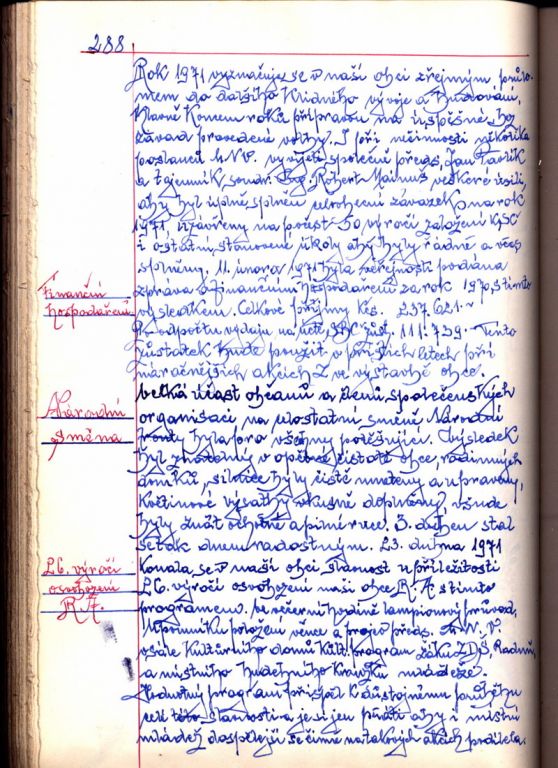 288
Rok 1971 vyznačuje se v naší obci zřejmým průlo-
mem do dalšího klidného vývoje a budování,
hlavně koncem roku přípravou na úspěšné bez
závad provedené volby. I při nečinnosti několika
poslanců MNV. vyvíjeli společně předs. Jan Pavlík
a tajemník soudr. Ing. Robert veškeré úsilí,
aby byl úplně splněn celoobecní závazek na rok
1971, uzavřený na počest 50 výročí založení KSČ
i ostatní stanovené úkoly aby byly řádně a včas
splněny. 11. února 1971 byla veřejnosti podána
Finanční
hospodaření
zpráva o finančním hospodaření za rok 1970 s tímto
výsledkem. Celkové příjmy Kčs. 237.621.-
Po odpočtu výdajů na účtě SBČ zůst. 111.739.- Tento
zůstatek bude použit v příštích letech při
náročnějších akcích Z ve výstavbě obce.
Národní
směna
Velká účast občanů a členů společenských
organisací na celostátní směně Národní
fronty byla pro všechny potěšující. Výsledek
byl znatelný v opětné čistotě obce, rodinných
domků, silnice byly čistě umeteny a upraveny,
květinové výsadby vkusně doplněny, všude
byly znát ochotné a pilné ruce. 3. duben stal
se tak dnem radostným. 23. dubna 1971
26. výročí
osvobození
R.A.
konala se v naší obci slavnost u příležitosti
26. výročí osvobození naší obce R.A. s tímto
programem. Ve večerní hodině lampionový průvod,
U pomníku položení věnce a projev předs. M.N.V.
v sále Kulturního domu kult. program žáků ZDŠ, Raduň,
a místního hudebního kroužku mládeže.
Hodnotný program přispěl k důstojnému průběhu
celé této slavnosti a je si jen přáti aby i místní
mládež dospělejší se činně na takových akcích podílela.